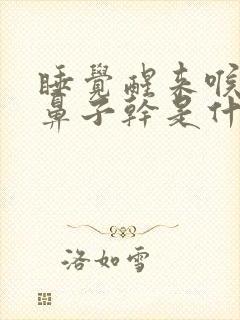 睡覺醒來喉
鼻子幹是什
洛如雪